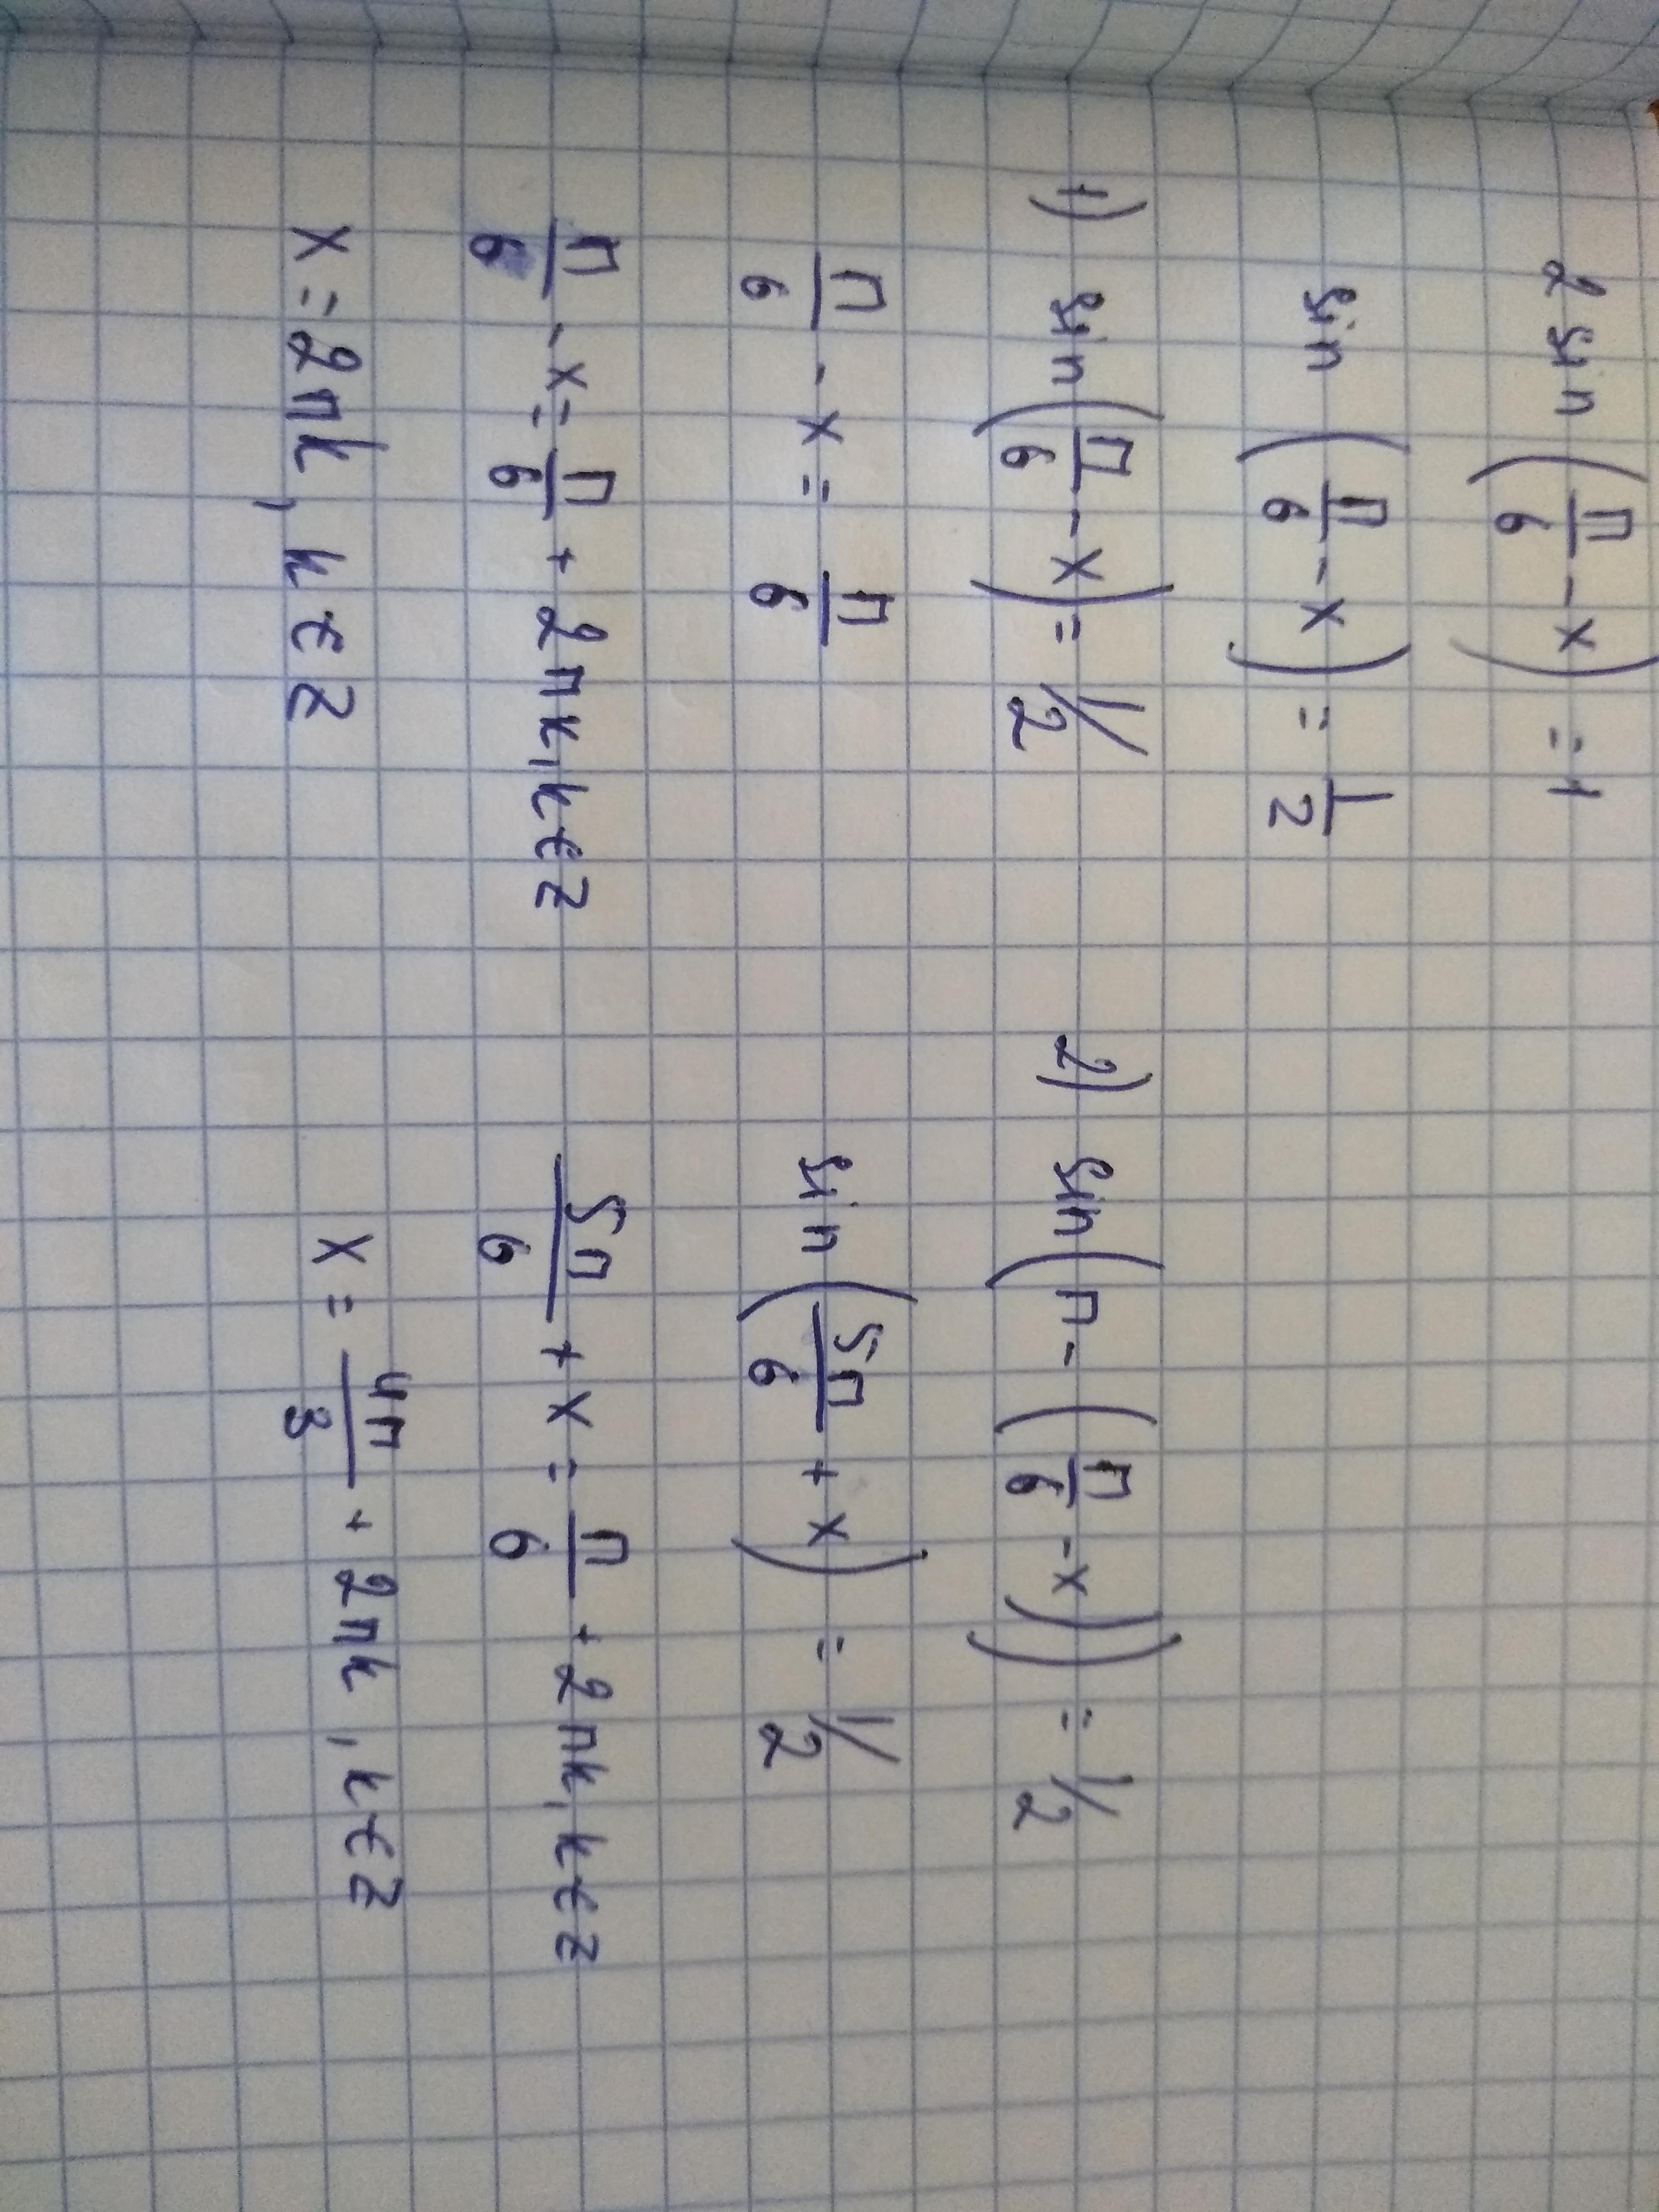 2 sin (п/6 - x) = 1
sin (п/6 - x) = 1/2
1) sin (п/6 - x) = 1/2
п/6 - x = п/6
п/6 - x = п/6 + 2пk, k ∈ Z
x = 2пk, k ∈ Z
2) sin (п - (п/6 - x)) = 1/2
sin (5п/6 + x) = 1/2
5п/6 + x = п/6 + 2пk, k ∈ Z
x = 4п/3 + 2пk, k ∈ Z